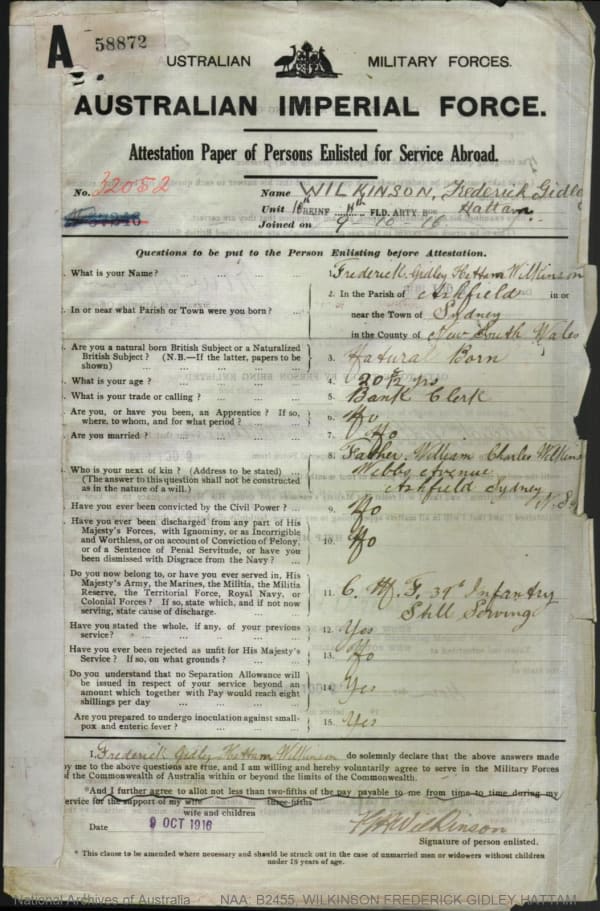 A 58872
USTRALIAN MILITARY FORCES.
AUSTRALIAN IMPERIAL FORCE.
Attestation Paper of Persons Enlisted for Service Abroad.
No. 32052
Name WILKINSON, Frederick Gidley
Hattam.
Unit 16th REINF FLD. ARTY BDE
Joined on 9-10-16.
Questions to be put to the Person Enlisting before Attestation.
What is your Name? ... ... ... Frederick Gidley Hattam Wilkinson
In or near what Parish or Town were you born? ...
2. In the Parish of Ashfield in or
near the Town of Sydney
in the County of New South Wales
Are you a natural born British Subject or a Naturalized
British Subject? (N.B.—If the latter, papers to be
shown) ... ... ... 3. Natural Born
What is your age? ... ... ... 4. 20 5/12 yrs
What is your trade or calling? ... ... 5. Bank Clerk
Are you, or have you been, an Apprentice? If so,
where, to whom, and for what period? ... 6. No
Are you married? ... ... ... 7. No
Who is your next of kin? (Address to be stated) ...
(The answer to this question shall not be construed
as in the nature of a will.)
8. Father, William Charles Wilkins
Webbs Avenue
Ashfield Sydney
N.S.
Have you ever been convicted by the Civil Power? ... 9. No
Have you ever been discharged from any part of His
Majesty's Forces, with Ignominy, or as Incorrigible
and Worthless, or on account of Conviction of Felony,
or of a Sentence of Penal Servitude, or have you
been dismissed with Disgrace from the Navy? ... 10. No
Do you now belong to, or have you ever served in, His
Majesty's Army, the Marines, the Militia, the Militia
Reserve, the Territorial Force, Royal Navy, or
Colonial Forces? If so, state which, and if not now
serving, state cause of discharge.
11. C. M. F. 39th Infantry
Still Serving
Have you stated the whole, if any, of your previous
service? ... ... ... 12. Yes
Have you ever been rejected as unfit for His Majesty's
Service? If so, on what grounds? ... 13. No
Do you understand that no Separation Allowance will
be issued in respect of your service beyond an
amount which together with Pay would reach eight
shillings per day ... ... 14. Yes
Are you prepared to undergo inoculation against small-
pox and enteric fever? ... ... 15. Yes
I, Frederick Gidley Hattam Wilkinson do solemnly declare that the above answers made
by me to the above questions are true, and I am willing and hereby voluntarily agree to serve in the Military Forces
of the Commonwealth of Australia within or beyond the limits of the Commonwealth.
*And I further agree to allot not less than two-fifths of the pay payable to me from time to time during my
three-fifths
service for the support of my wife
wife and children
Date 9 OCT 1916
Signature of person enlisted.
* This clause to be amended where necessary and should be struck out in the case of unmarried men or widowers without children
under 18 years of age.
National Archives of Australia NAA: B2455, WILKINSON FREDERICK GIDLEY HATTAM